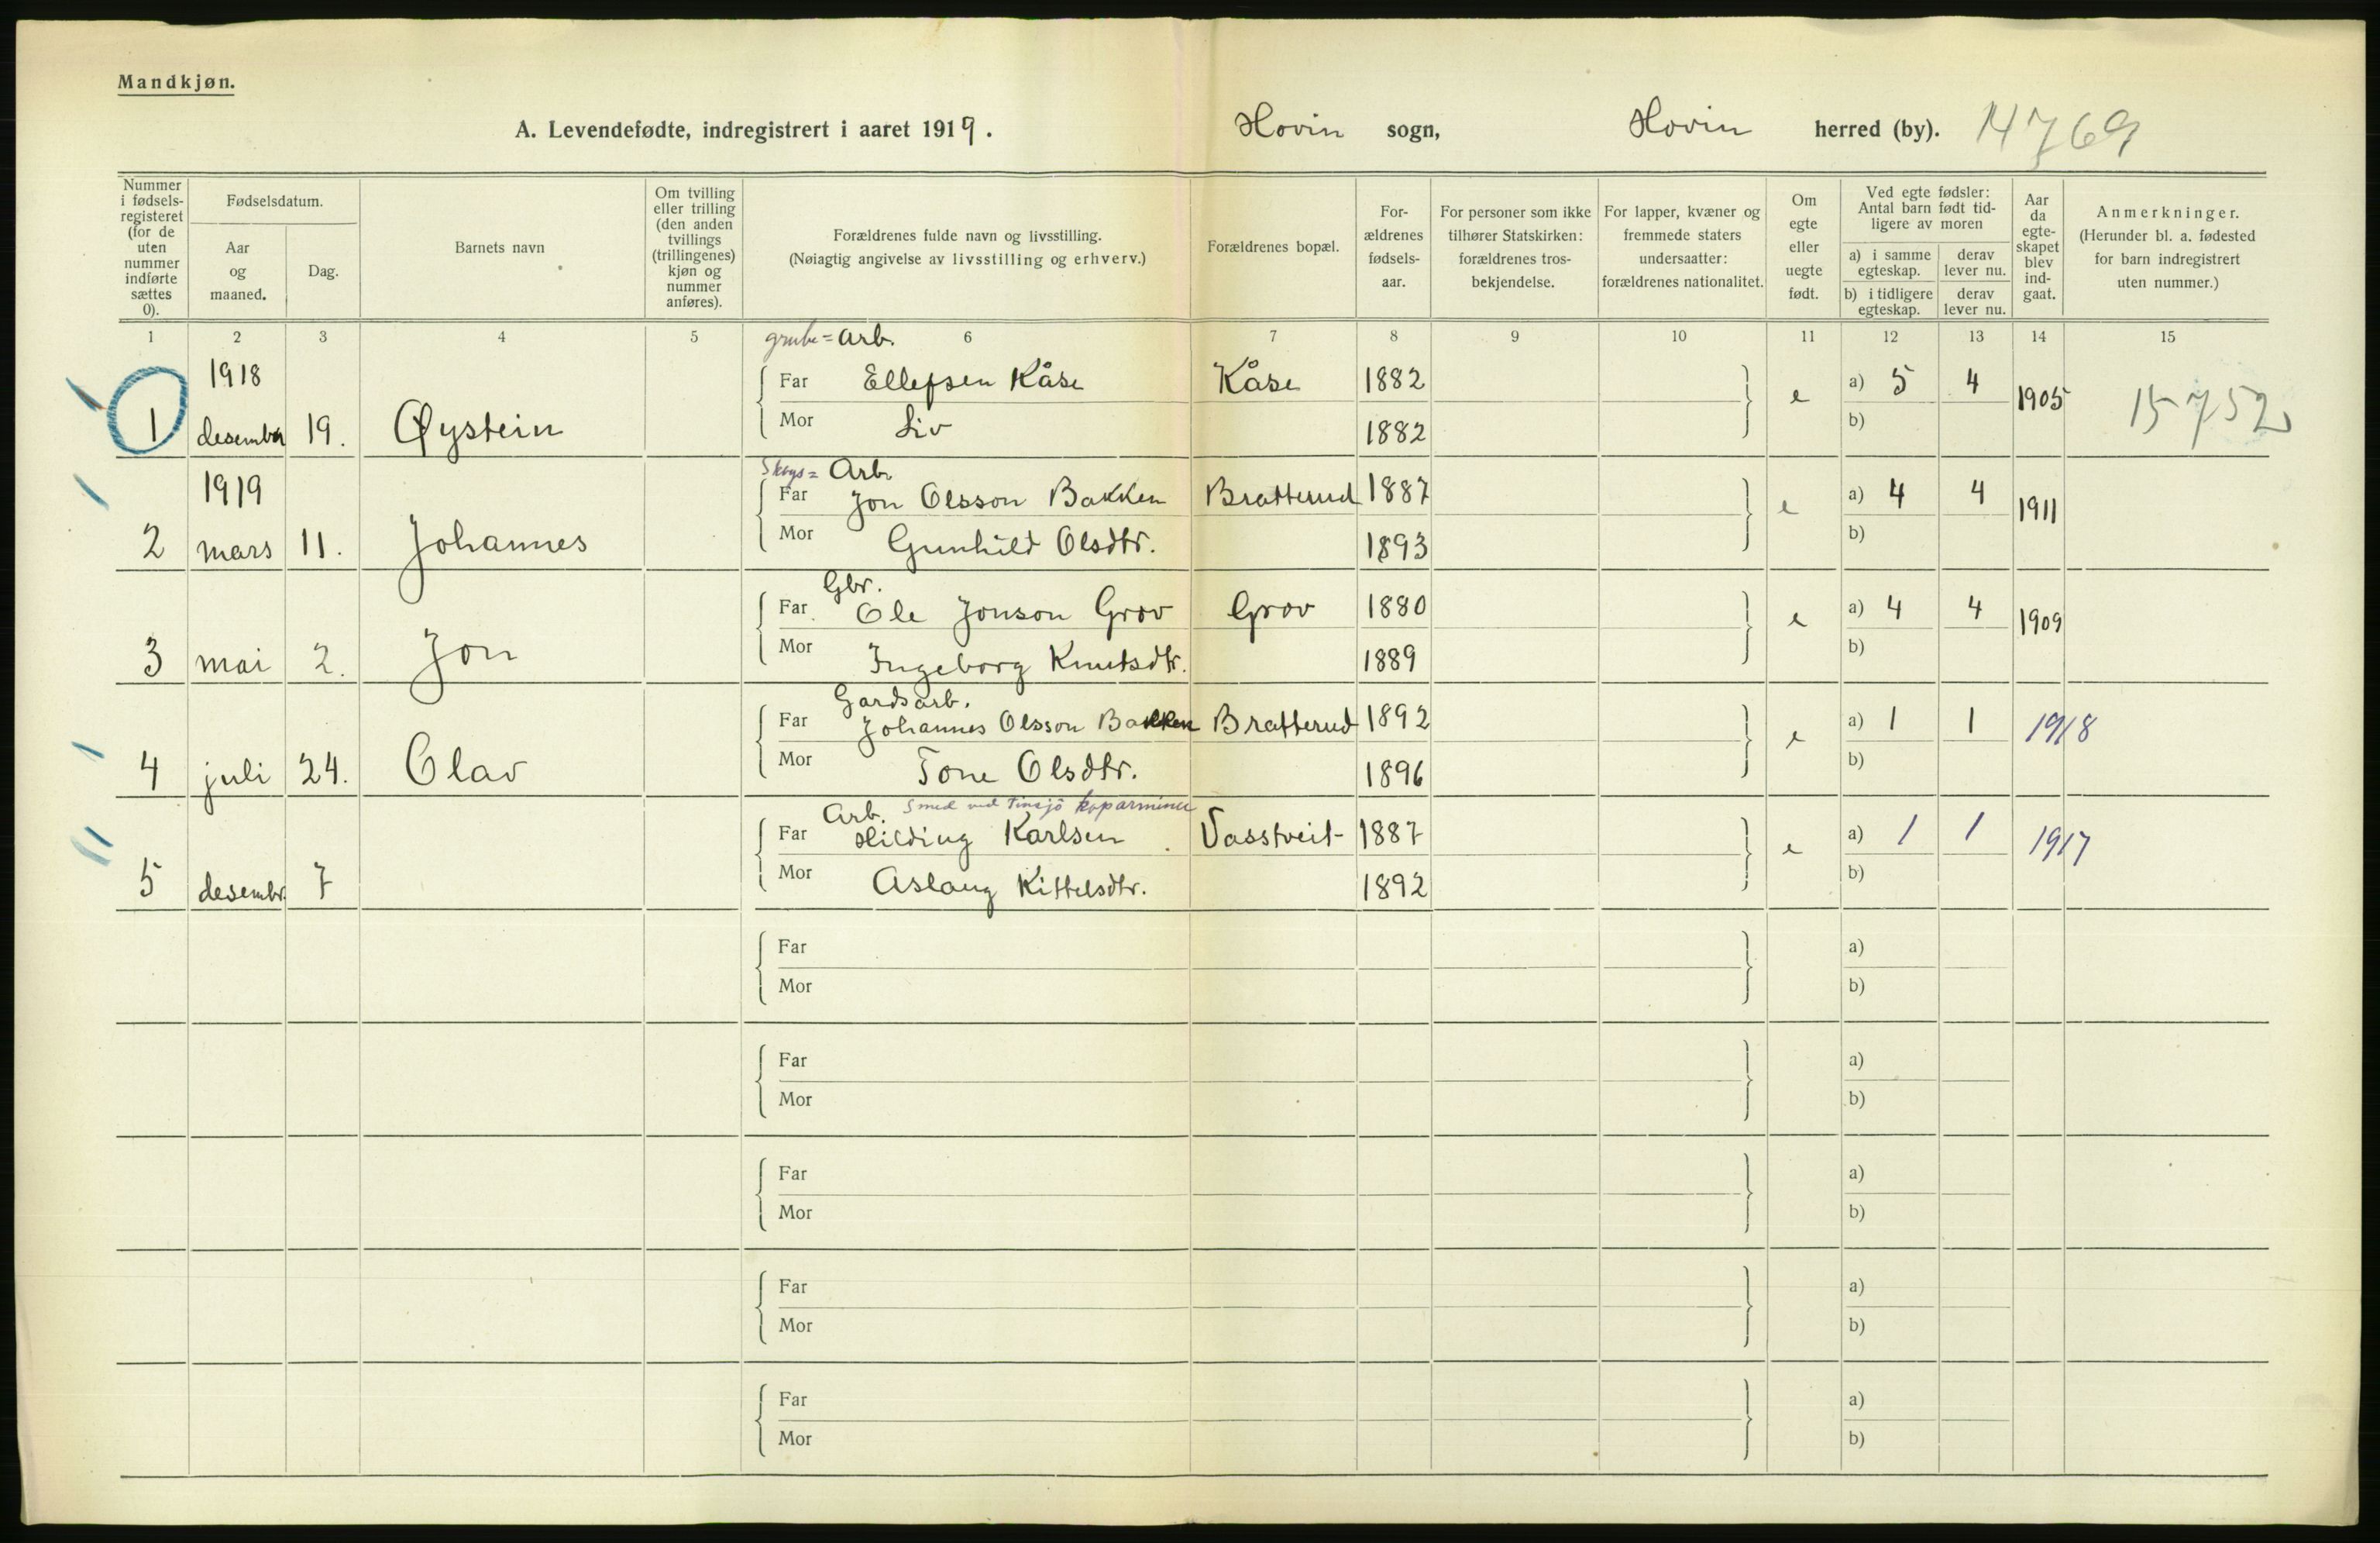 Mandkjøn.
A. Levendefødte, indregistrert i aaret 1919. Hovin sogn, Hovin herred (by). 14769
Nummer i fødsels-registeret (for de uten nummer indførte sættes 0).
Fødselsdatum.
Aar og maaned.
Dag.
Barnets navn
Om tvilling eller trilling (den anden tvillings (trillingenes) kjøn og nummer anføres).
Forældrenes fulde navn og livsstilling.
(Nøiagtig angivelse av livsstilling og erhverv.)
Forældrenes bopæl.
For-ældrenes fødsels-aar.
For personer som ikke tilhører Statskirken: forældrenes tros-bekjendelse.
For lapper, kvæner og fremmede staters undersaatter: forældrenes nationalitet.
Om egte eller uegte født.
Ved egte fødsler: Antal barn født tid-ligere av moren
a) i samme egteskap. derav lever nu.
b) i tidligere egteskap. derav lever nu.
Aar da egte-skapet blev ind-gaat.
Anmerkninger.
(Herunder bl. a. fødested for barn indregistrert uten nummer.)
1 2 3 4 5 6 7 8 9 10 11 12 13 14 15
grube=Arb.
1918 Far Ellefsen Kåse Kåse 1882 e a) 5 4 1905 15752
1 desember 19. Øystein Mor Liv 1882 b)
Skogs= Arb.
1919 Far Jon Olsson Bakken Bratterud 1887 e a) 4 4 1911
2 mars 11. Johannes Mor Gunhild Olsdtr. 1893 b)
Gbr.
Far Ole Jonson Grov Grov 1880 e a) 4 4 1909
3 mai 2. Jon Mor Ingeborg Knutsdtr. 1889 b)
Gardsarb.
Far Johannes Olsson Bakken Bratterud 1892 e a) 1 1 1918
4 juli 24. Olav Mor Tone Olsdtr. 1896 b)
Arb. Smed ved Tinsjö koparminer
Far Hilding Karlsen Vasstveit 1887 e a) 1 1 1917
5 desembr. 7 Mor Aslaug Kittelsdtr. 1892 b)
Far a)
Mor b)
Far a)
Mor b)
Far a)
Mor b)
Far a)
Mor b)
Far a)
Mor b)